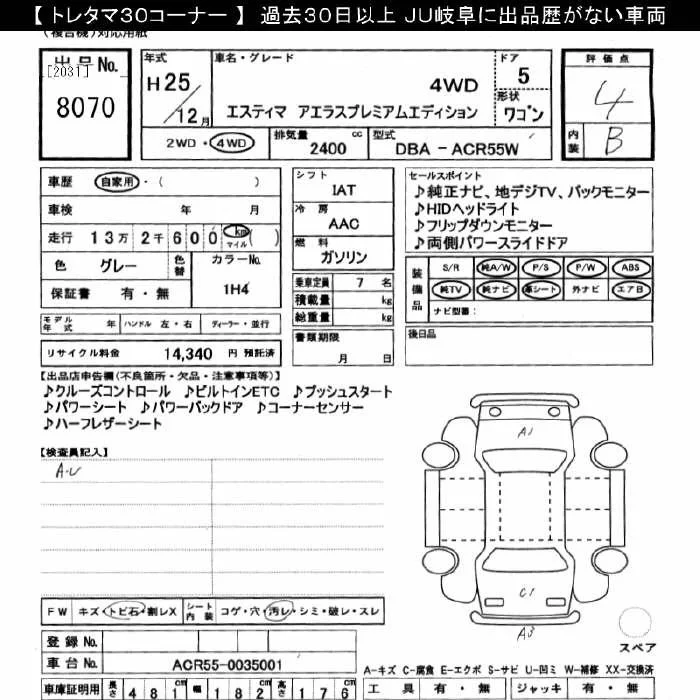 【 トレタマ30コーナー 】 過去30日以上 JU岐阜に出品歴がない車両
(複合機)対応用紙
出品No.
[2031]
8070
年式
H25/12月
車名・グレード
4WD
エスティマ アエラスプレミアムエディション
ドア
5
形状
ワゴン
2WD・4WD
排気量
2400 cc
型式
DBA - ACR55W
評価点
4
内装
B
車歴 自家用・( )
車検 年 月
走行 13万2千600 km マイル ( )
色 グレー
色替
カラーNo.
1H4
保証書 有・無
モデル年式 年 ハンドル 左・右 ディーラー・並行
リサイクル料金 14,340 円 預託済
シフト
IAT
冷房
AAC
燃料
ガソリン
乗車定員 7 名
積載量 kg
総重量 kg
書類期限
月 日
セールスポイント
♪純正ナビ、地デジTV、バックモニター
♪HIDヘッドライト
♪フリップダウンモニター
♪両側パワースライドドア
装備品
S/R 純A/W P/S P/W ABS
純TV 純ナビ 革シート 外ナビ エアB
ナビ型番:
後日品
【出品店申告欄(不良箇所・欠品・注意事項等)】
♪クルーズコントロール ♪ビルトインETC ♪プッシュスタート
♪パワーシート ♪パワーバックドア ♪コーナーセンサー
♪ハーフレザーシート
【検査員記入】
A-U
A1
C1
A3
スペア
FW キズ・トビ石・割レX
シート内装 コゲ・穴・汚レ・シミ・破レ・スレ
登録No.
車台No. ACR55-0035001
車庫証明用 長さ 481 cm 幅 182 cm 高さ 176 cm
A-キズ C-腐食 E-エクボ S-サビ U-凹ミ W-補修 XX-交換済
工具 有・無 ジャッキ 有・無